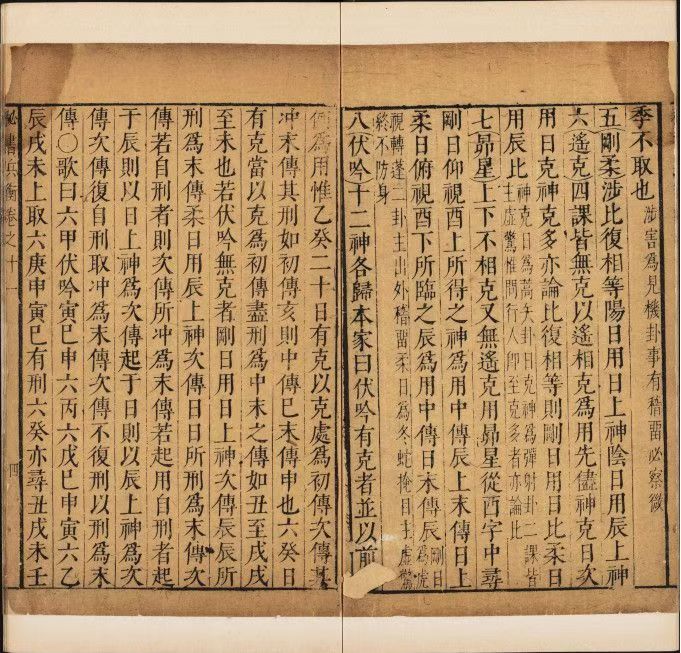 季不取也 涉害爲見機卦事有稽畱必察微
五剛柔涉比復相等陽日用日上神陰日用辰上神
六遙克四課皆無克以遙相克爲用先儘神克日次
用日克神克多亦論比復相等則剛日用日比柔日
用辰比 神克日爲蒿矢卦日克神爲彈射卦二課皆
主虛驚惟問行人卽至克多者亦論比
七昴星上下不相克又無遙克用昴星從酉字中尋
剛日仰視酉上所得之神爲用中傳辰上末傳日上
柔日俯視酉下所臨之辰爲用中傳日末傳辰 剛日
爲虎
視轉蓬二卦主出外稽畱柔日爲冬蛇掩目主虛驚
終不防身
八伏吟十二神各歸本家曰伏吟有克者並以前
爲用惟乙癸二十日有克以克處爲初傳次傳其
冲末傳其刑如初傳亥則中傳巳末傳申也六癸日
有克當以克爲初傳儘刑爲中末之傳如丑至戌戌
至未也若伏吟無克者剛日用日上神次傳辰辰所
刑爲末傳柔日用辰上神次傳日日所刑爲末傳次
傳若自刑者則次傳所冲爲末傳若起用自刑者起
于辰則以日上神爲次傳起于日則以辰上神爲次
傳次傳復自刑取冲爲末傳次傳不復刑以刑爲末
傳○歌曰六甲伏吟寅巳申六丙六戊巳申寅六乙
辰戌未上取六庚申寅巳有刑六癸亦尋丑戌未壬
秘書兵衡卷之十一 四